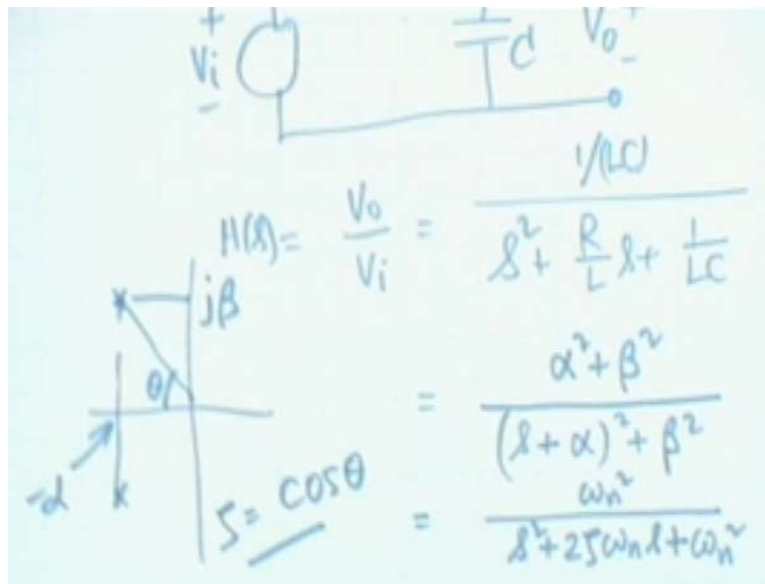 + Vi − C Vo + −
H(s) = Vo/Vi = 1/(LC) / (s² + R/L s + 1/LC)
jβ
= α² + β² / ((s + α)² + β²)
θ
-α
ζ = cosθ
= ωn² / (s² + 2ζωn s + ωn²)